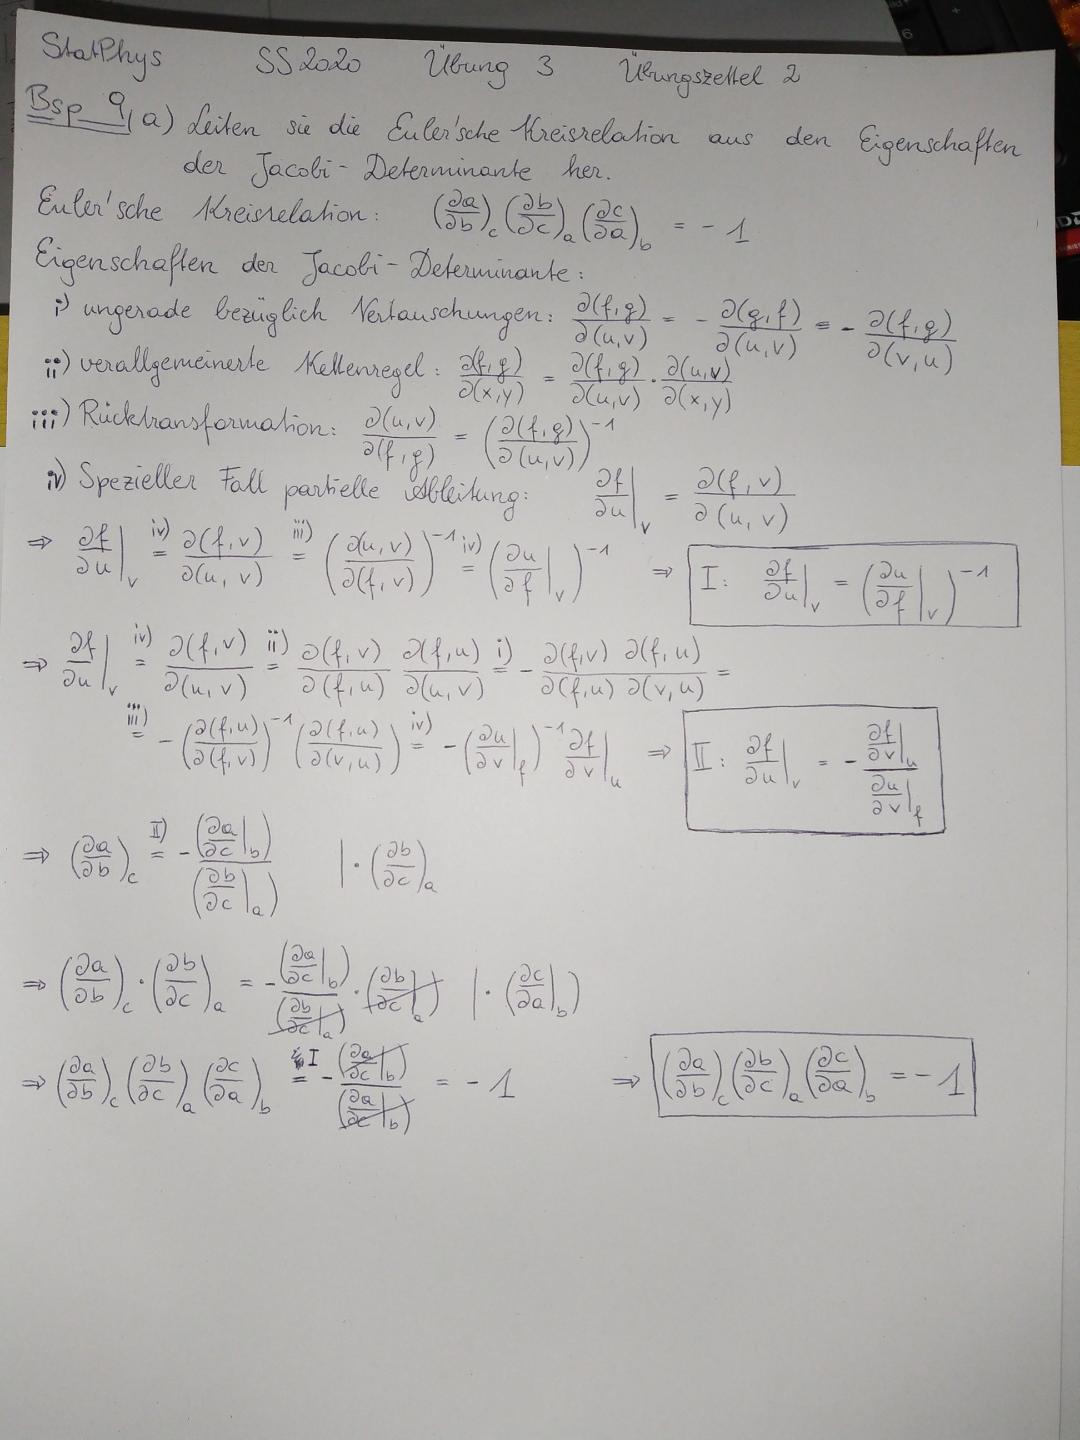 StatPhys SS2020 Übung 3 Übungszettel 2
Bsp 9, a) Leiten sie die Euler'sche Kreisrelation aus den Eigenschaften
der Jacobi-Determinante her.
Euler'sche Kreisrelation: (∂a/∂b)_c (∂b/∂c)_a (∂c/∂a)_b = -1
Eigenschaften der Jacobi-Determinante:
i) ungerade bezüglich Vertauschungen: ∂(f,g)/∂(u,v) = - ∂(g,f)/∂(u,v) = - ∂(f,g)/∂(v,u)
ii) verallgemeinerte Kettenregel: ∂(f,g)/∂(x,y) = ∂(f,g)/∂(u,v) · ∂(u,v)/∂(x,y)
iii) Rücktransformation: ∂(u,v)/∂(f,g) = (∂(f,g)/∂(u,v))^-1
iv) Spezieller Fall partielle Ableitung: ∂f/∂u|_v = ∂(f,v)/∂(u,v)
⇒ ∂f/∂u|_v =^iv) ∂(f,v)/∂(u,v) =^iii) (∂(u,v)/∂(f,v))^-1 =^iv) (∂u/∂f|_v)^-1 ⇒ I: ∂f/∂u|_v = (∂u/∂f|_v)^-1
⇒ ∂f/∂u|_v =^iv) ∂(f,v)/∂(u,v) =^ii) ∂(f,v)/∂(f,u) ∂(f,u)/∂(u,v) =^i) - ∂(f,v)/∂(f,u) ∂(f,u)/∂(v,u) =
=^iii) -(∂(f,u)/∂(f,v))^-1 (∂(f,u)/∂(v,u)) =^iv) -(∂u/∂v|_f)^-1 ∂f/∂v|_u ⇒ II: ∂f/∂u|_v = - (∂f/∂v|_u)/(∂u/∂v|_f)
⇒ (∂a/∂b)_c =^II) - (∂a/∂c|_b)/(∂b/∂c|_a) | · (∂b/∂c)_a
⇒ (∂a/∂b)_c · (∂b/∂c)_a = - (∂a/∂c|_b)/(∂b/∂c|_a) · (∂b/∂c|_a) | · (∂c/∂a|_b)
⇒ (∂a/∂b)_c (∂b/∂c)_a (∂c/∂a)_b =^I - (∂a/∂c|_b)/(∂a/∂c|_b) = -1 ⇒ (∂a/∂b)_c (∂b/∂c)_a (∂c/∂a)_b = -1